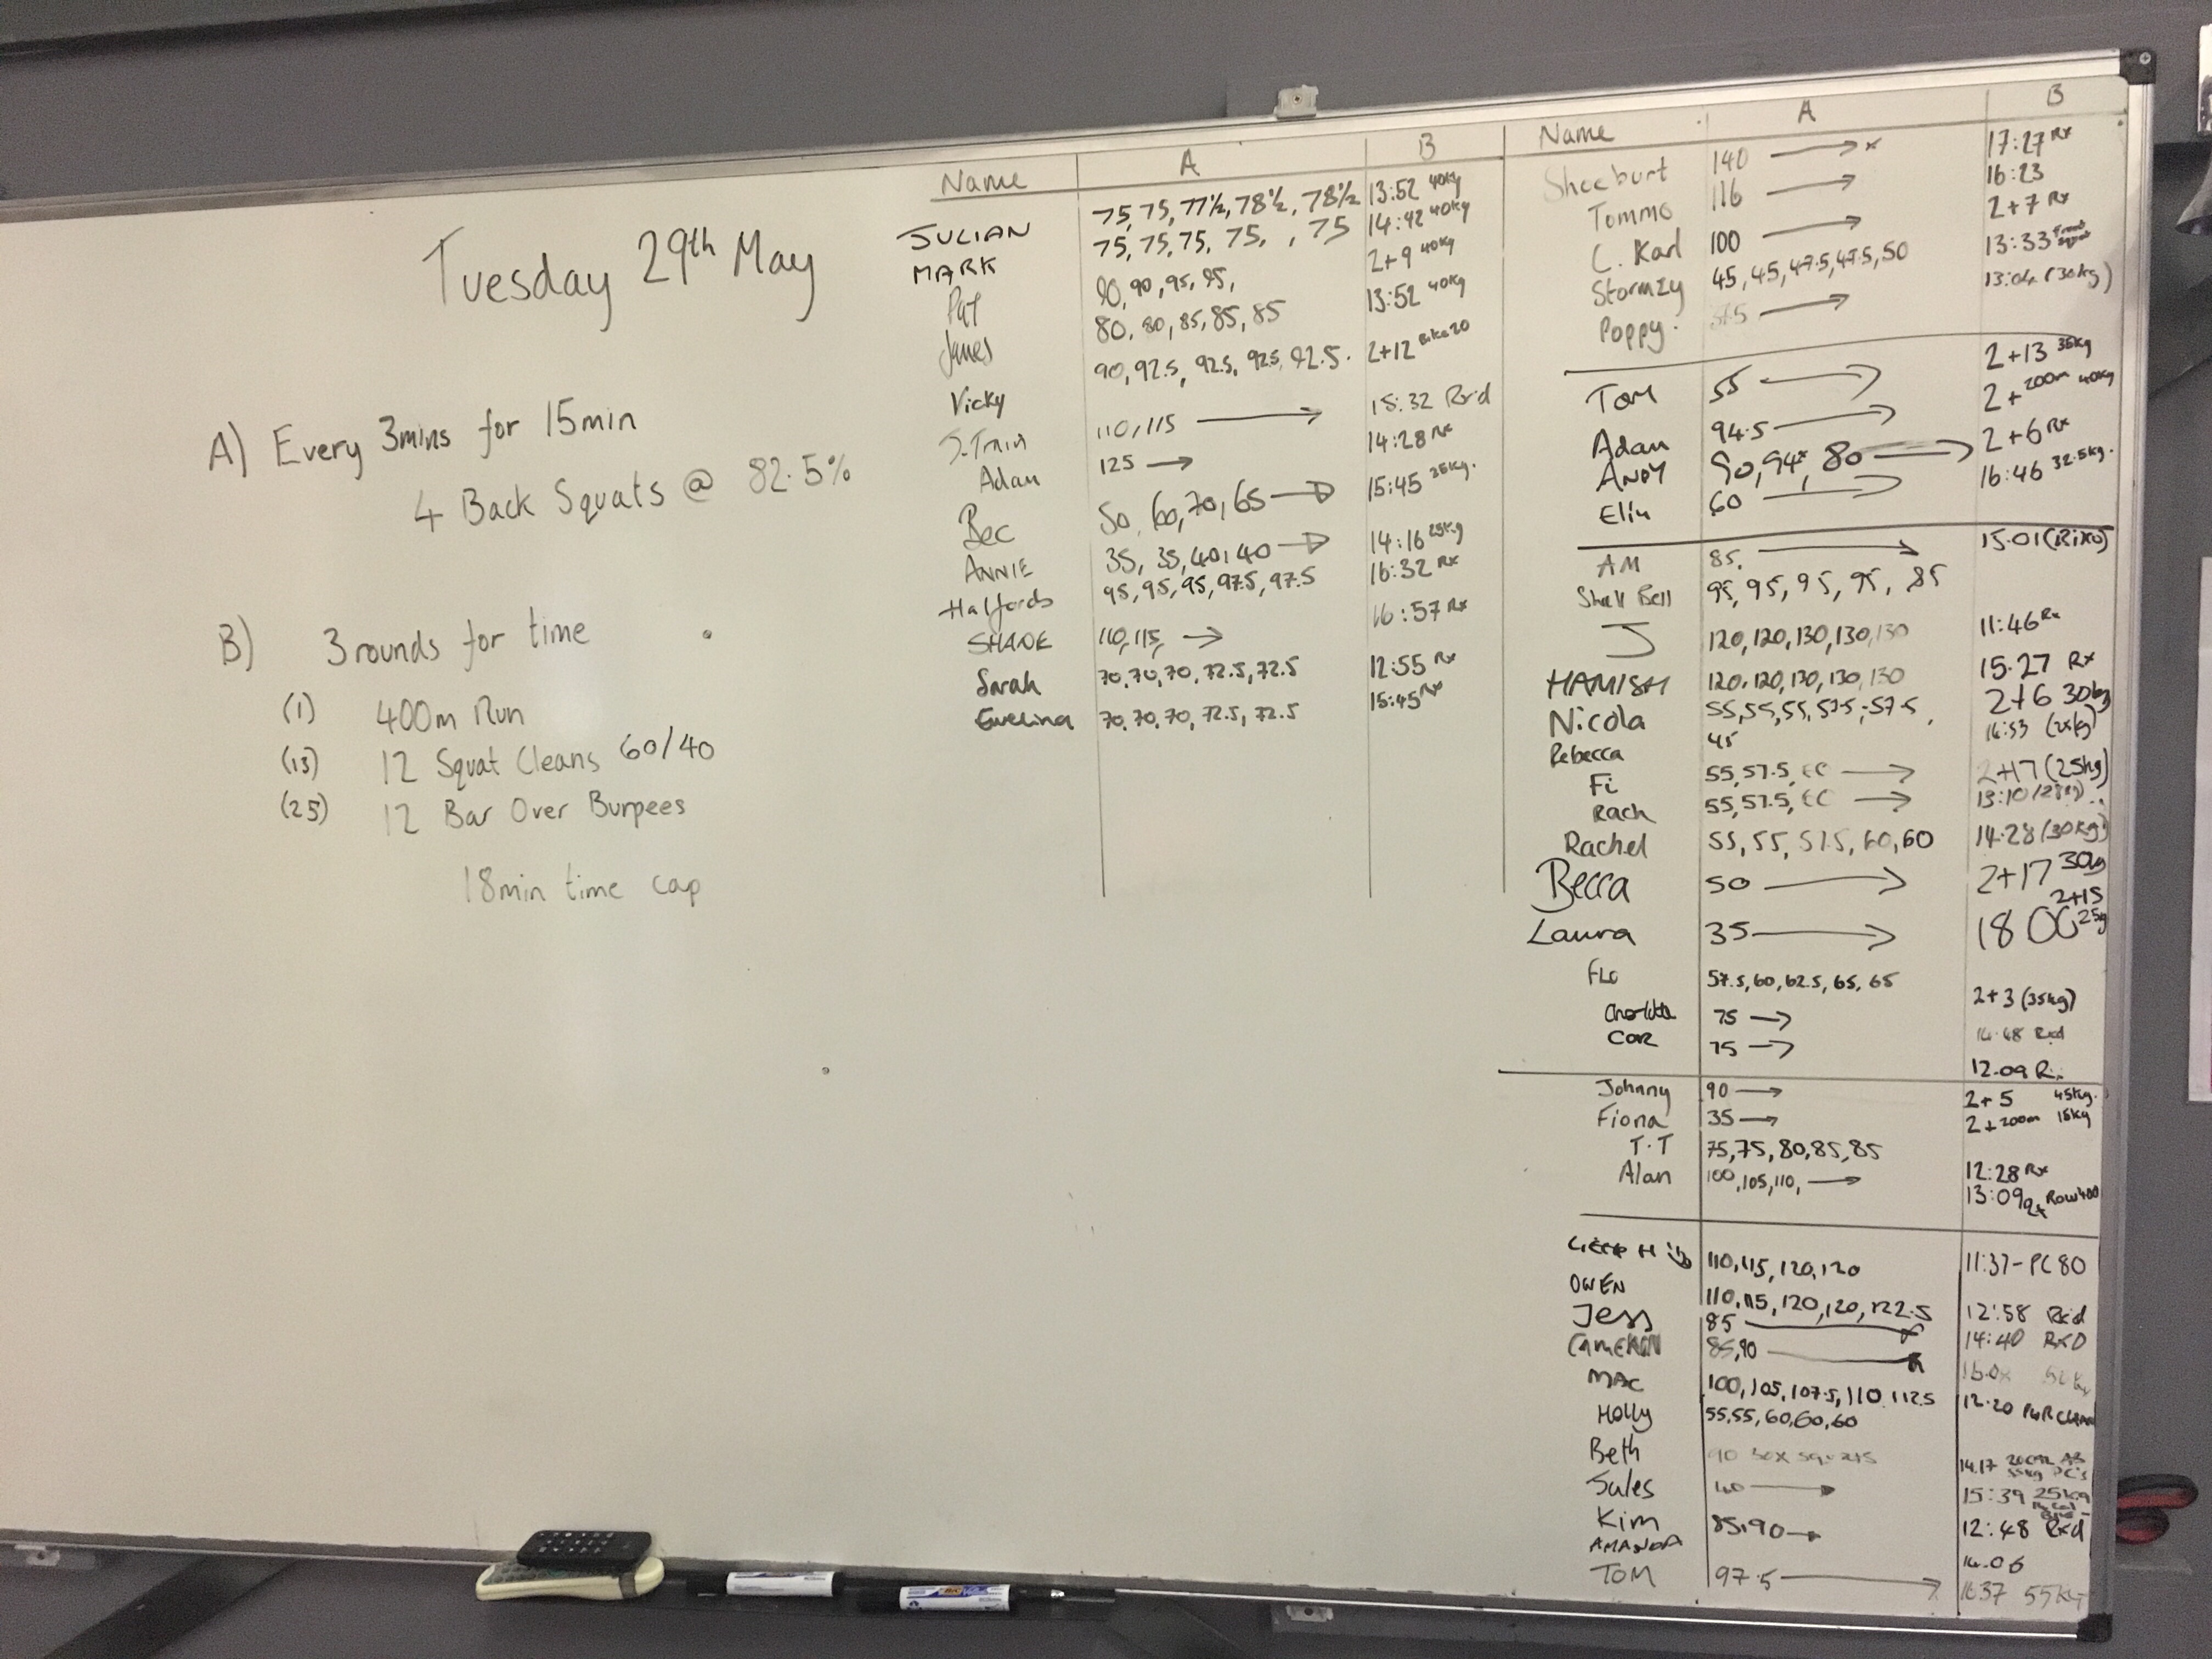 Tuesday 29th May
A) Every 3mins for 15min
4 Back Squats @ 82.5%
B) 3 rounds for time
(1) 400m Run
(13) 12 Squat Cleans 60/40
(25) 12 Bar Over Burpees
18min time cap
Name A B
JULIAN 75, 75, 77½, 78½, 78½ 13:52 40kg
MARK 75, 75, 75, 75, , 75 14:42 40kg
Pat 90, 90, 95, 95, 2+9 40kg
James 80, 80, 85, 85, 85 13:52 40kg
Vicky 90, 92.5, 92.5, 92.5, 92.5. 2+12 Bike 20
J-Train 110, 115 → 15:32 Rx'd
Adam 125 → 14:28 Rx
Bec 50, 60, 70, 65 → 15:45 35kg.
ANNIE 35, 35, 40, 40 → 14:16 25kg
Halfords 95, 95, 95, 97.5, 97.5 16:32 Rx
SHANE 110, 115, → 16:57 Rx
Sarah 70, 70, 70, 72.5, 72.5 12:55 Rx
Ewelina 70, 70, 70, 72.5, 72.5 15:45 Rx
Name A B
140 → 17:27 Rx
Tommo 116 → 16:23
C. Karl 100 → 2+7 Rx
Stormzy 45, 45, 47.5, 47.5, 50 13:33 front squat
Poppy. → 13:04 (30kg)
Tom 55 → 2+13 35kg
Adam 94.5 → 2+200m 40kg
ANDY 90, 94, 80 → 2+6 Rx
Elin 60 → 16:46 32.5kg.
AM 85, → 15:01
Shell Bell 95, 95, 95, 95, 85
J 120, 120, 130, 130, 130 11:46 Rx
HAMISH 120, 120, 130, 130, 130 15:27 Rx
Nicola 55, 55, 55, 57.5, 57.5, 2+6 30kg
Rebecca 45 16:53 (25kg)
Fi 55, 57.5, 60 → 2+17 (25kg)
Rach 55, 57.5, 60 → 13:10
Rachel 55, 55, 57.5, 60, 60 14:28 (30kg)
Becca 50 → 2+17 30kg
Laura 35 → 2+15 18 00 25kg
Flo 57.5, 60, 62.5, 65, 65
Charlotte 75 → 2+3 (35kg)
COR 75 → 14:48 Rxd
12.09
Johnny 90 → 2+5 45kg.
Fiona 35 → 2+200m 15kg
T.T 75, 75, 80, 85, 85
Alan 100, 105, 110, → 12:28 Rx
13:09 Rx Row 400
110, 115, 120, 120 11:37 - PC 80
OWEN 110, 115, 120, 120, 122.5 12:58 Rxd
Jess 85 → 14:40 RXD
CAMERON 85, 90 →
MAC 100, 105, 107.5, 110 112.5 12.20 PWR CLEAN
Holly 55, 55, 60, 60, 60
Beth 90 box squats 14.17
Jules 40 → 15:39 25kg
Kim 85, 90 → 12:48 Rxd
AMANDA 14.06
TOM 97.5 → 16:37 55kg